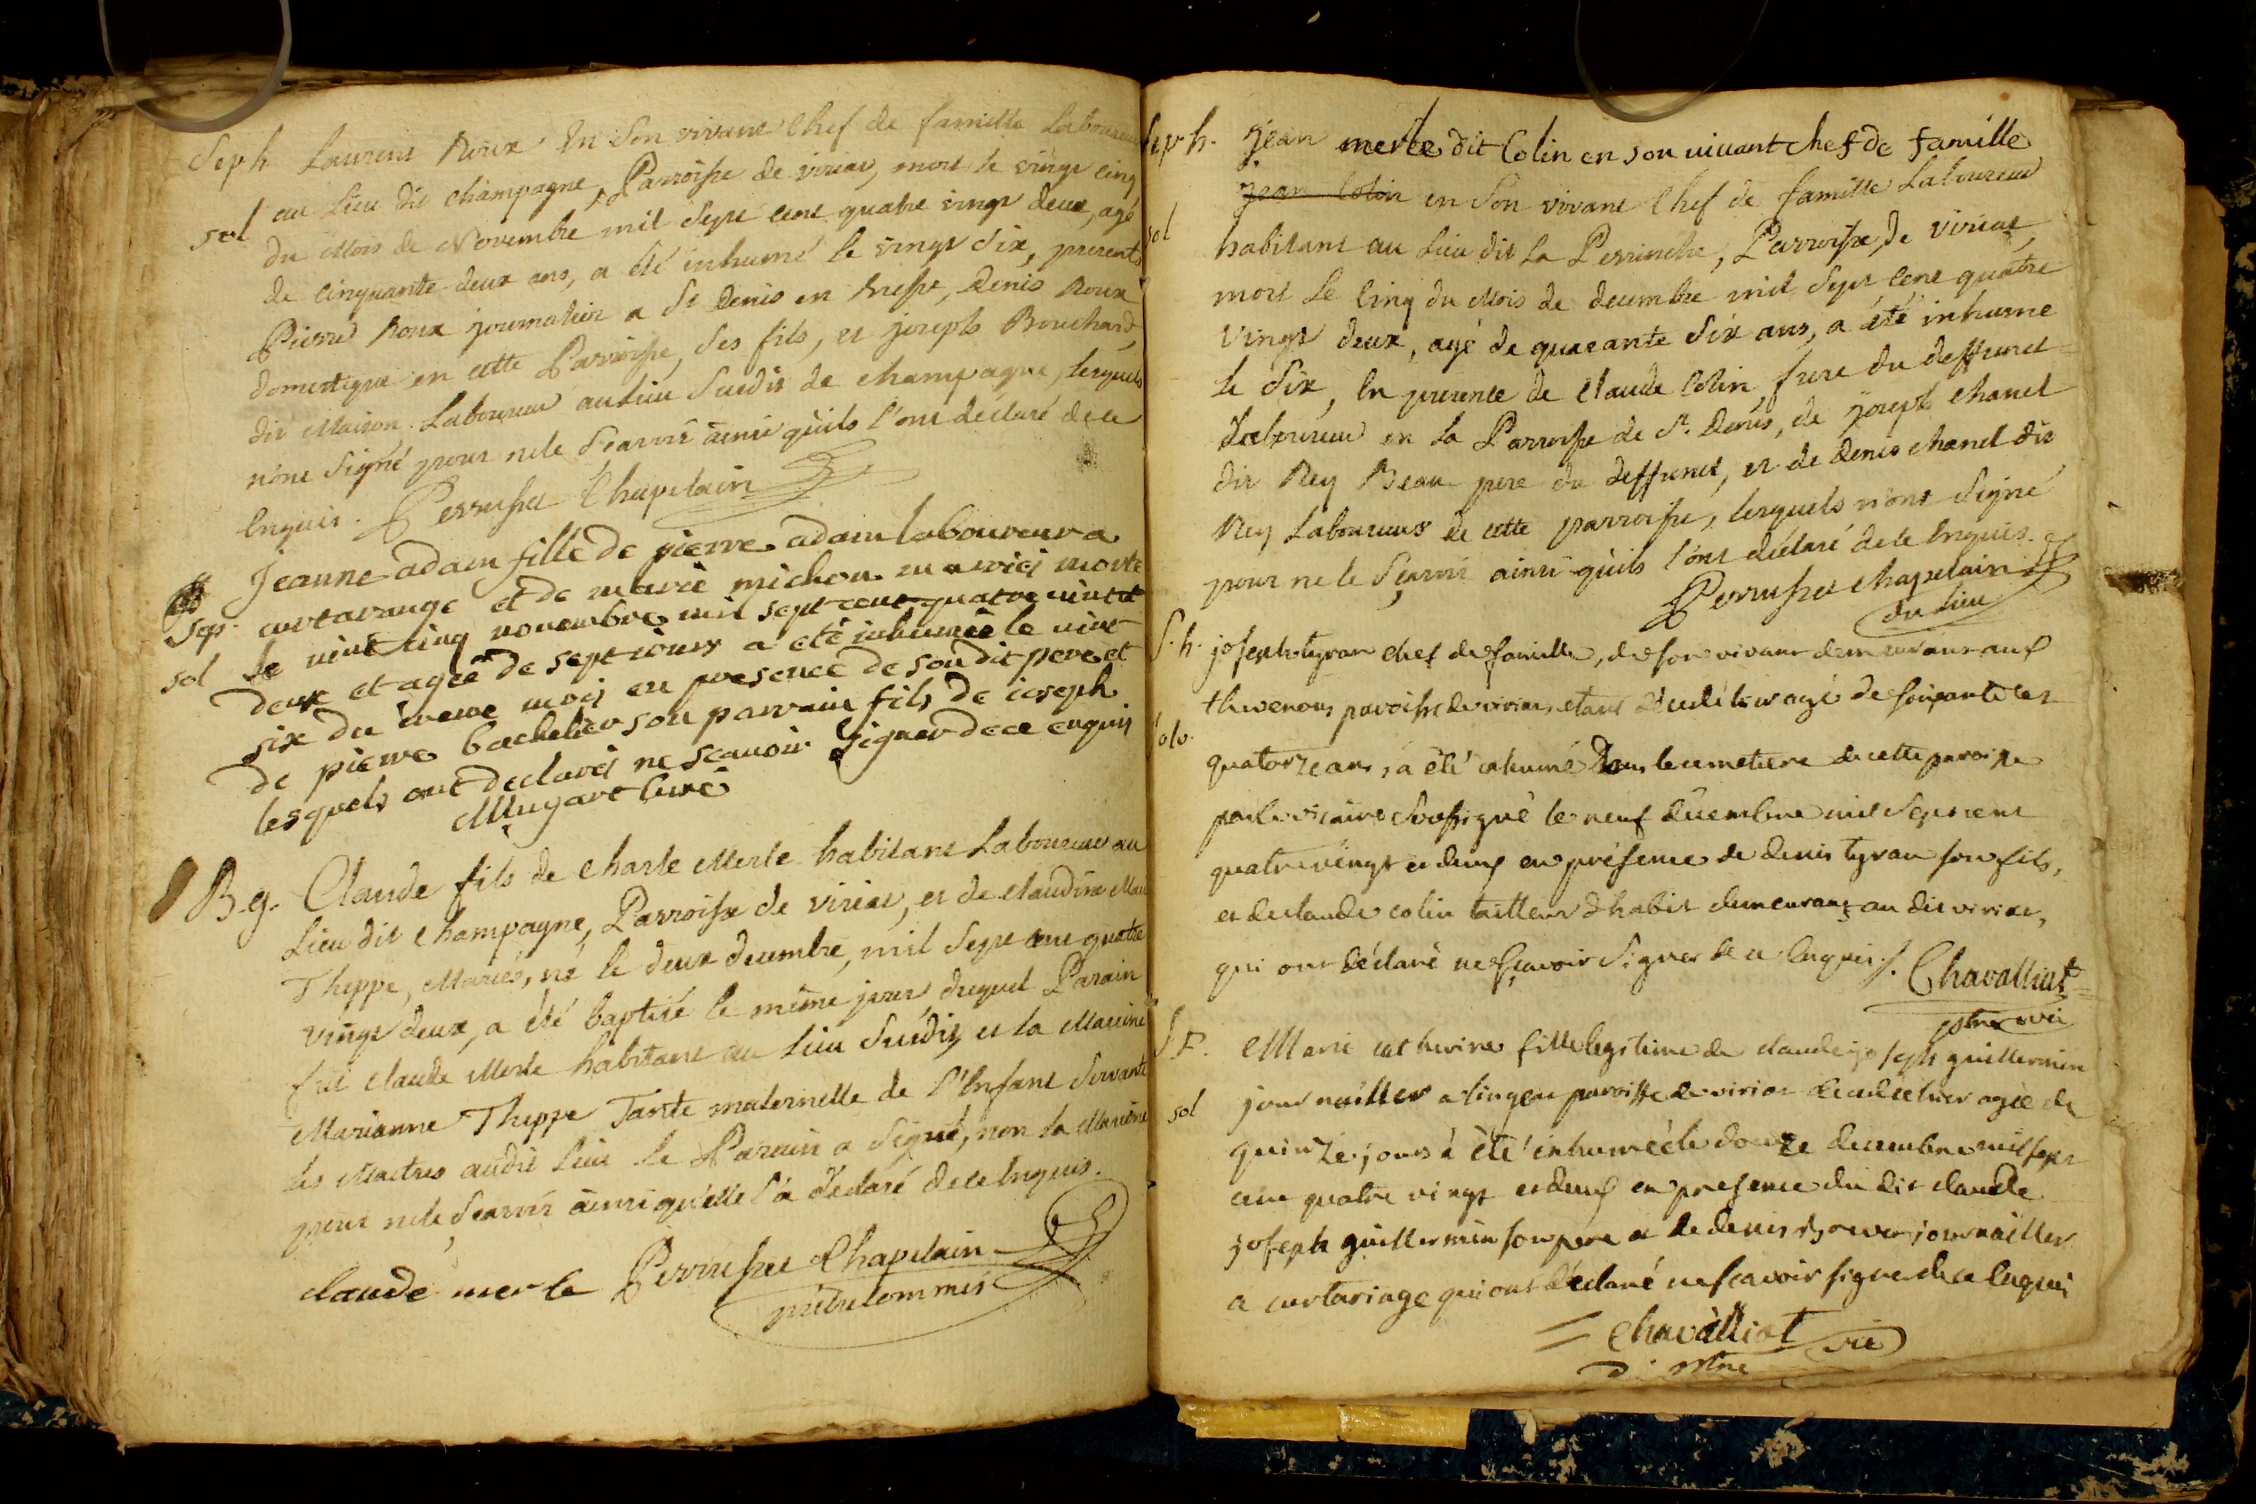 Seph Laurent Roux En Son vivant Chef de famille Laboureur
au Lieu dit champagne, Parroisse de viriat, mort le vingt cinq
sol du Mois de Novembre mil Sept cent quatre vingt deux, agé
de Cinquante deux ans, a été inhumé le vingt Six, presents
Pierre Roux journalier a St Denis en Bresse, Denis Roux
domestique en cette Parroisse, Ses fils, et joseph Bouchard
dit Maison Laboureur au lieu Susdit de champagne, lesquels
n'ont Signé pour ne le Sçavoir ainsi qu'ils l'ont déclaré de ce
Enquis. Perruset Chapelain
Jeanne adam fille de pierre adam laboureur a
Sep. curtarange et de marie michon mariés morte
sol le vint cinq novembre mil sept cent quatre vint
deux et agée de sept iours a eté inhumée le vint
six du meme mois en presence de son dit pere et
de pierre bachelier son parrain fils de ioseph
lesquels ont declarés ne scauoir signer de ce enquis
Mugart curé
B.g. Claude fils de Charle Merle habitant Laboureur au
Lieu dit Champagne, Parroisse de viriat, et de Claudine Marie
Theppe, Mariés, né le deux decembre, mil Sept cent quatre
vingt deux, a été baptisé le même jour, duquel Parain
fut Claude Merle habitant au lieu Susdit, et la Maraine
Marianne Theppe Tante maternelle de l'Enfant Servante
des Maitres audit lieu le Parain a Signé, non la Maraine
pour ne le Sçavoir ainsi qu'elle l'a déclaré de ce Enquis.
claude merle Perruset Chapelain
prêtre commis
Seph. Jean merle dit Colin en son uiuant chef de famille
jean Colin en Son vivant Chef de famille Laboureur
sol habitant au Lieu dit La Perrinche, Parroisse de viriat,
mort Le Cinq du Mois de decembre mil Sept Cent quatre
Vingt deux, agé de quarante Six ans, a été inhumé
le Six, En presence de Claude Colin frere du deffunct
Laboureur en La Parroisse de St. Denis, de joseph Chanel
dit Rey Beau pere du deffunct, et de Denis Chanel dit
Rey Laboureurs de cette parroisse, lesquels n'ont Signé
pour ne le Sçavoir ainsi qu'ils l'ont déclaré de ce Enquis.
Perruset Chapelain
du Lieu
S.h. joseph tyran chef de famille, de son vivant demeurant aux
thevenons paroisse de viriat, etant décédé hier agé de soixante et
solv. quatorze ans, a été inhumé dans le cemetiere de cette paroisse
par le vicaire soussigné le neuf décembre mil Sept cent
quatre vingt et deux en présence de denis tyran son fils,
et de claude colin tailleur d'habit demeurant au dit viriat,
qui ont déclaré ne sçavoir Signer de ce Enquis. Chavalliat
ptre vic
S.F. Marie catherine fille legitime de claude joseph guillermin
sol journaillier a lingeat paroisse de viriat decedée hier agée de
quinze jours à été inhumée le douze decembre mil sept
cent quatre vingt et deux en presence du dit claude
joseph guillermin son pere et de denis journaillier
a curtaringe qui ont déclaré ne scavoir signer de ce Enquis
= Chavalliat vic
ptre